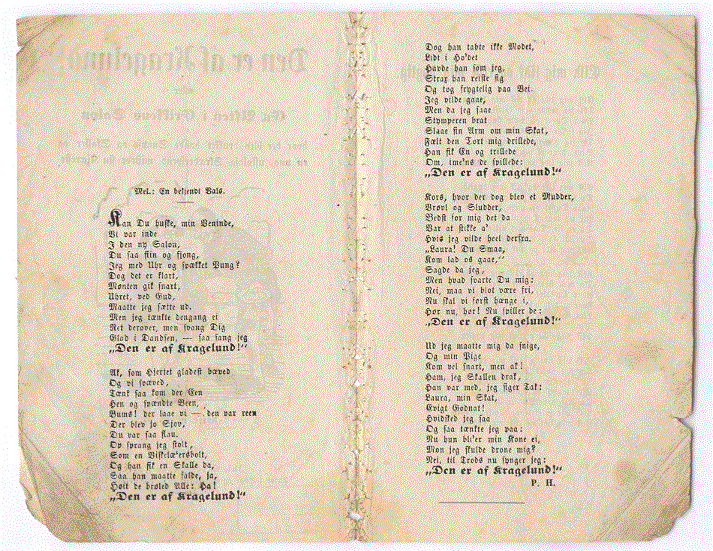 Mel.: En bekjendt Vals.
Kan Du huske, min Veninde,
Vi var inde
I den ny Salon,
Du saa fiin og fjong,
Jeg med Uhr og spækket Pung?
Dog det er klart,
Mønten gik snart,
Uhret, ved Gud,
Maatte jeg sætte ud.
Men jeg tænkte dengang ei
Net derover, men svang Dig
Glad i Dandsen, — saa sang jeg
„Den er af Kragelund!“
Ak, som Hjertet gladest bæved
Og vi svæved,
Tænk saa kom der Een
Hen og spændte Been,
Bums! der laae vi — den var reen
Der blev jo Sjov,
Du var saa flau.
Op sprang jeg stolt,
Som en
Og han fik en Skalle da,
Saa han maatte falde, ja,
Høit de brøled Alle: Ha!
„Den er af Kragelund!“
Dog han tabte ikke Modet,
Lidt i Ho'det
Havde han som jeg,
Strax han reiste sig
Og tog frygtelig paa Vei.
Jeg vilde gaae,
Men da jeg saae
Stymperen brat
Slaae sin Arm om min Skat,
Fælt den Tort mig drillede,
Han fik En og trillede
Om, ime'ns de spillede:
„Den er af Kragelund!“
Kors, hvor der dog blev et Mudder,
Vrøvl og Sludder,
Bedst for mig det da
Var at stikke a'
Hvis jeg vilde heel derfra.
„Laura! Du Smaa,
Kom lad os gaae,“
Sagde da jeg,
Men hvad svarte Du mig:
Nei, maa vi blot være fri,
Nu skal vi først hænge i,
Hør nu, hør! Nu spiller de:
„Den er af Kragelund!“
Ud jeg maatte mig da snige,
Og min Pige
Kom vel snart, men ak!
Ham, jeg Skallen drak,
Han var med, jeg siger Tak:
Laura, min Skat,
Evigt Godnat!
Hvidsked jeg saa
Og saa tænkte jeg paa:
Nu hun bli'er min Kone ei,
Mon jeg skulde drone mig?
Nei, til Trods nu synger jeg:
„Den er af Kragelund!“
P. H.